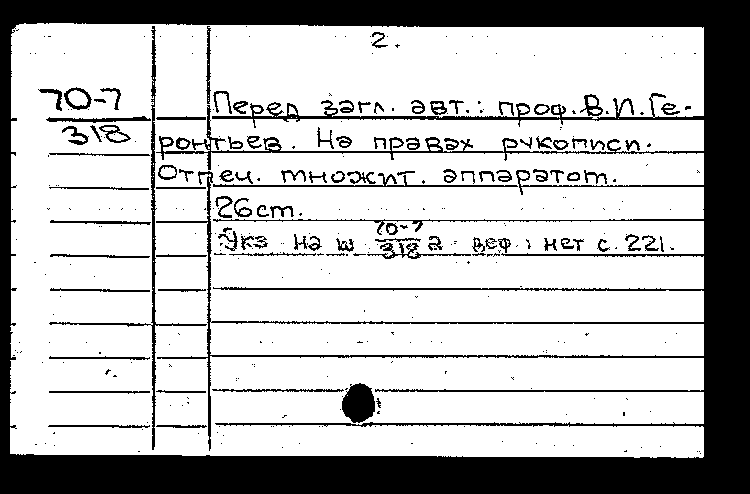 2.
70-7
318
Перед загл. авт.: проф. В.И. Ге-
ронтьев. На правах рукописи.
Отпеч. множит. аппаратом.
26cm.
Экз на ш 70-7/318а деф: нет с. 221.